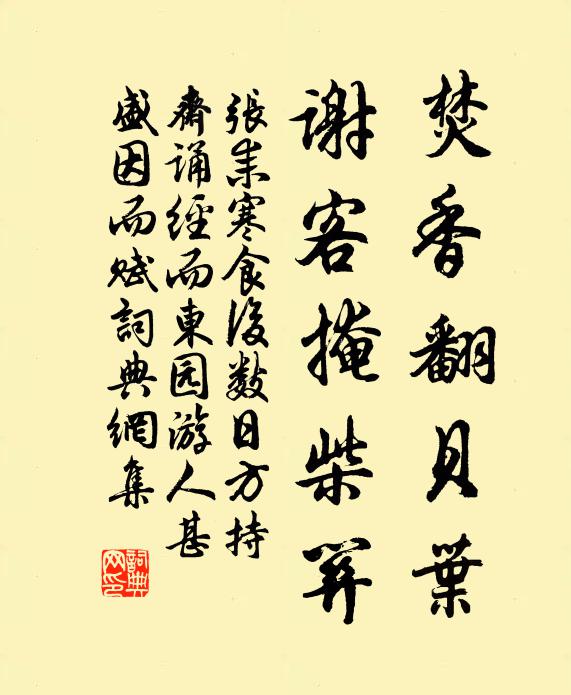 焚香翻貝葉
謝客掩柴關
張耒寒食後数日方持
齋誦經而東园游人甚
盛因而賦詞典網集
詞典网印